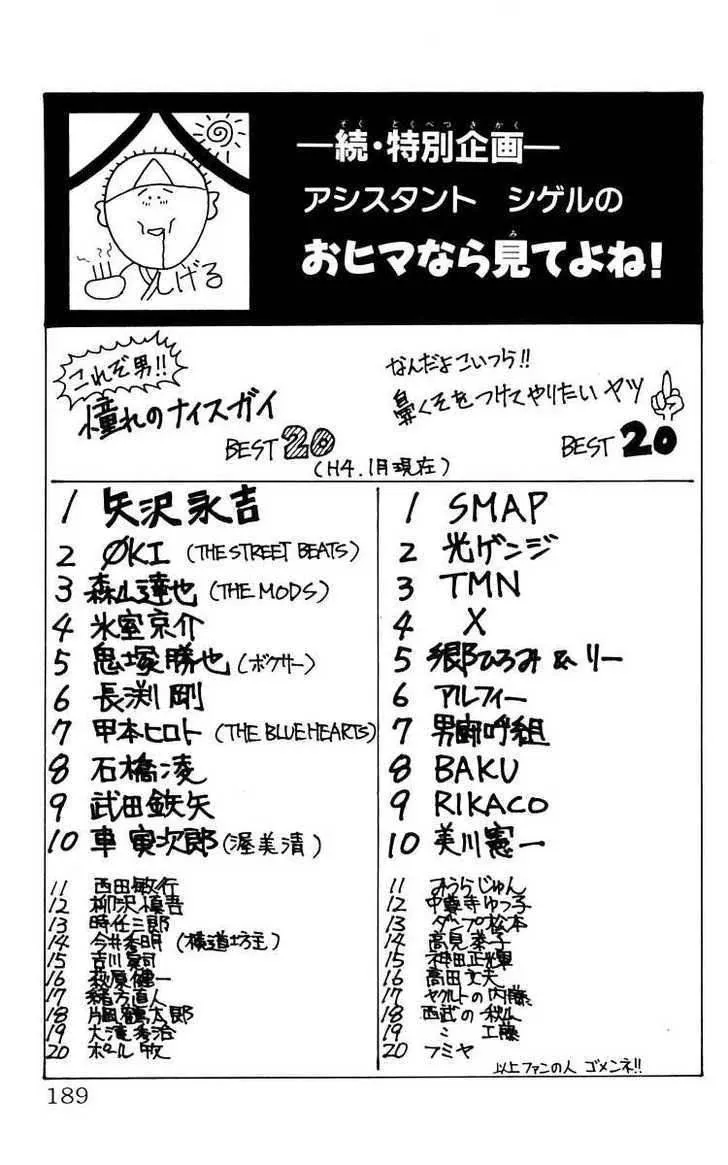 ―続・特別企画―
ぞく とくべつきかく
アシスタント シゲルの
おヒマなら見てよね!
み
しげる
これぞ男!!
憧れのナイスガイ
BEST 20
なんだよこいつら!!
鼻くそをつけてやりたい ヤツ
BEST 20
(H4.1月現在)
1 矢沢永吉
2 ØKI (THE STREET BEATS)
3 森山達也 (THE MODS)
4 氷室京介
5 鬼塚勝也 (ボクサー)
6 長渕剛
7 甲本ヒロト (THE BLUE HEARTS)
8 石橋凌
9 武田鉄矢
10 車寅次郎 (渥美清)
11 西田敏行
12 柳沢慎吾
13 時任三郎
14 今井秀明 (横道坊主)
15 吉川晃司
16 萩原健一
17 緒方直人
18 片岡鶴太郎
19 大滝秀治
20 ポール牧
1 SMAP
2 光ゲンジ
3 TMN
4 X
5 郷ひろみ & リー
6 アルフィー
7 男闘呼組
8 BAKU
9 RIKACO
10 美川憲一
11 みうらじゅん
12 中尊寺ゆつ子
13 ダンプ松本
14 高見恭子
15 神田正輝
16 高田文夫
17 ヤクルトの内藤
18 西武の秋山
19 〃 工藤
20 フミヤ
以上ファンの人 ゴメンネ!!
189